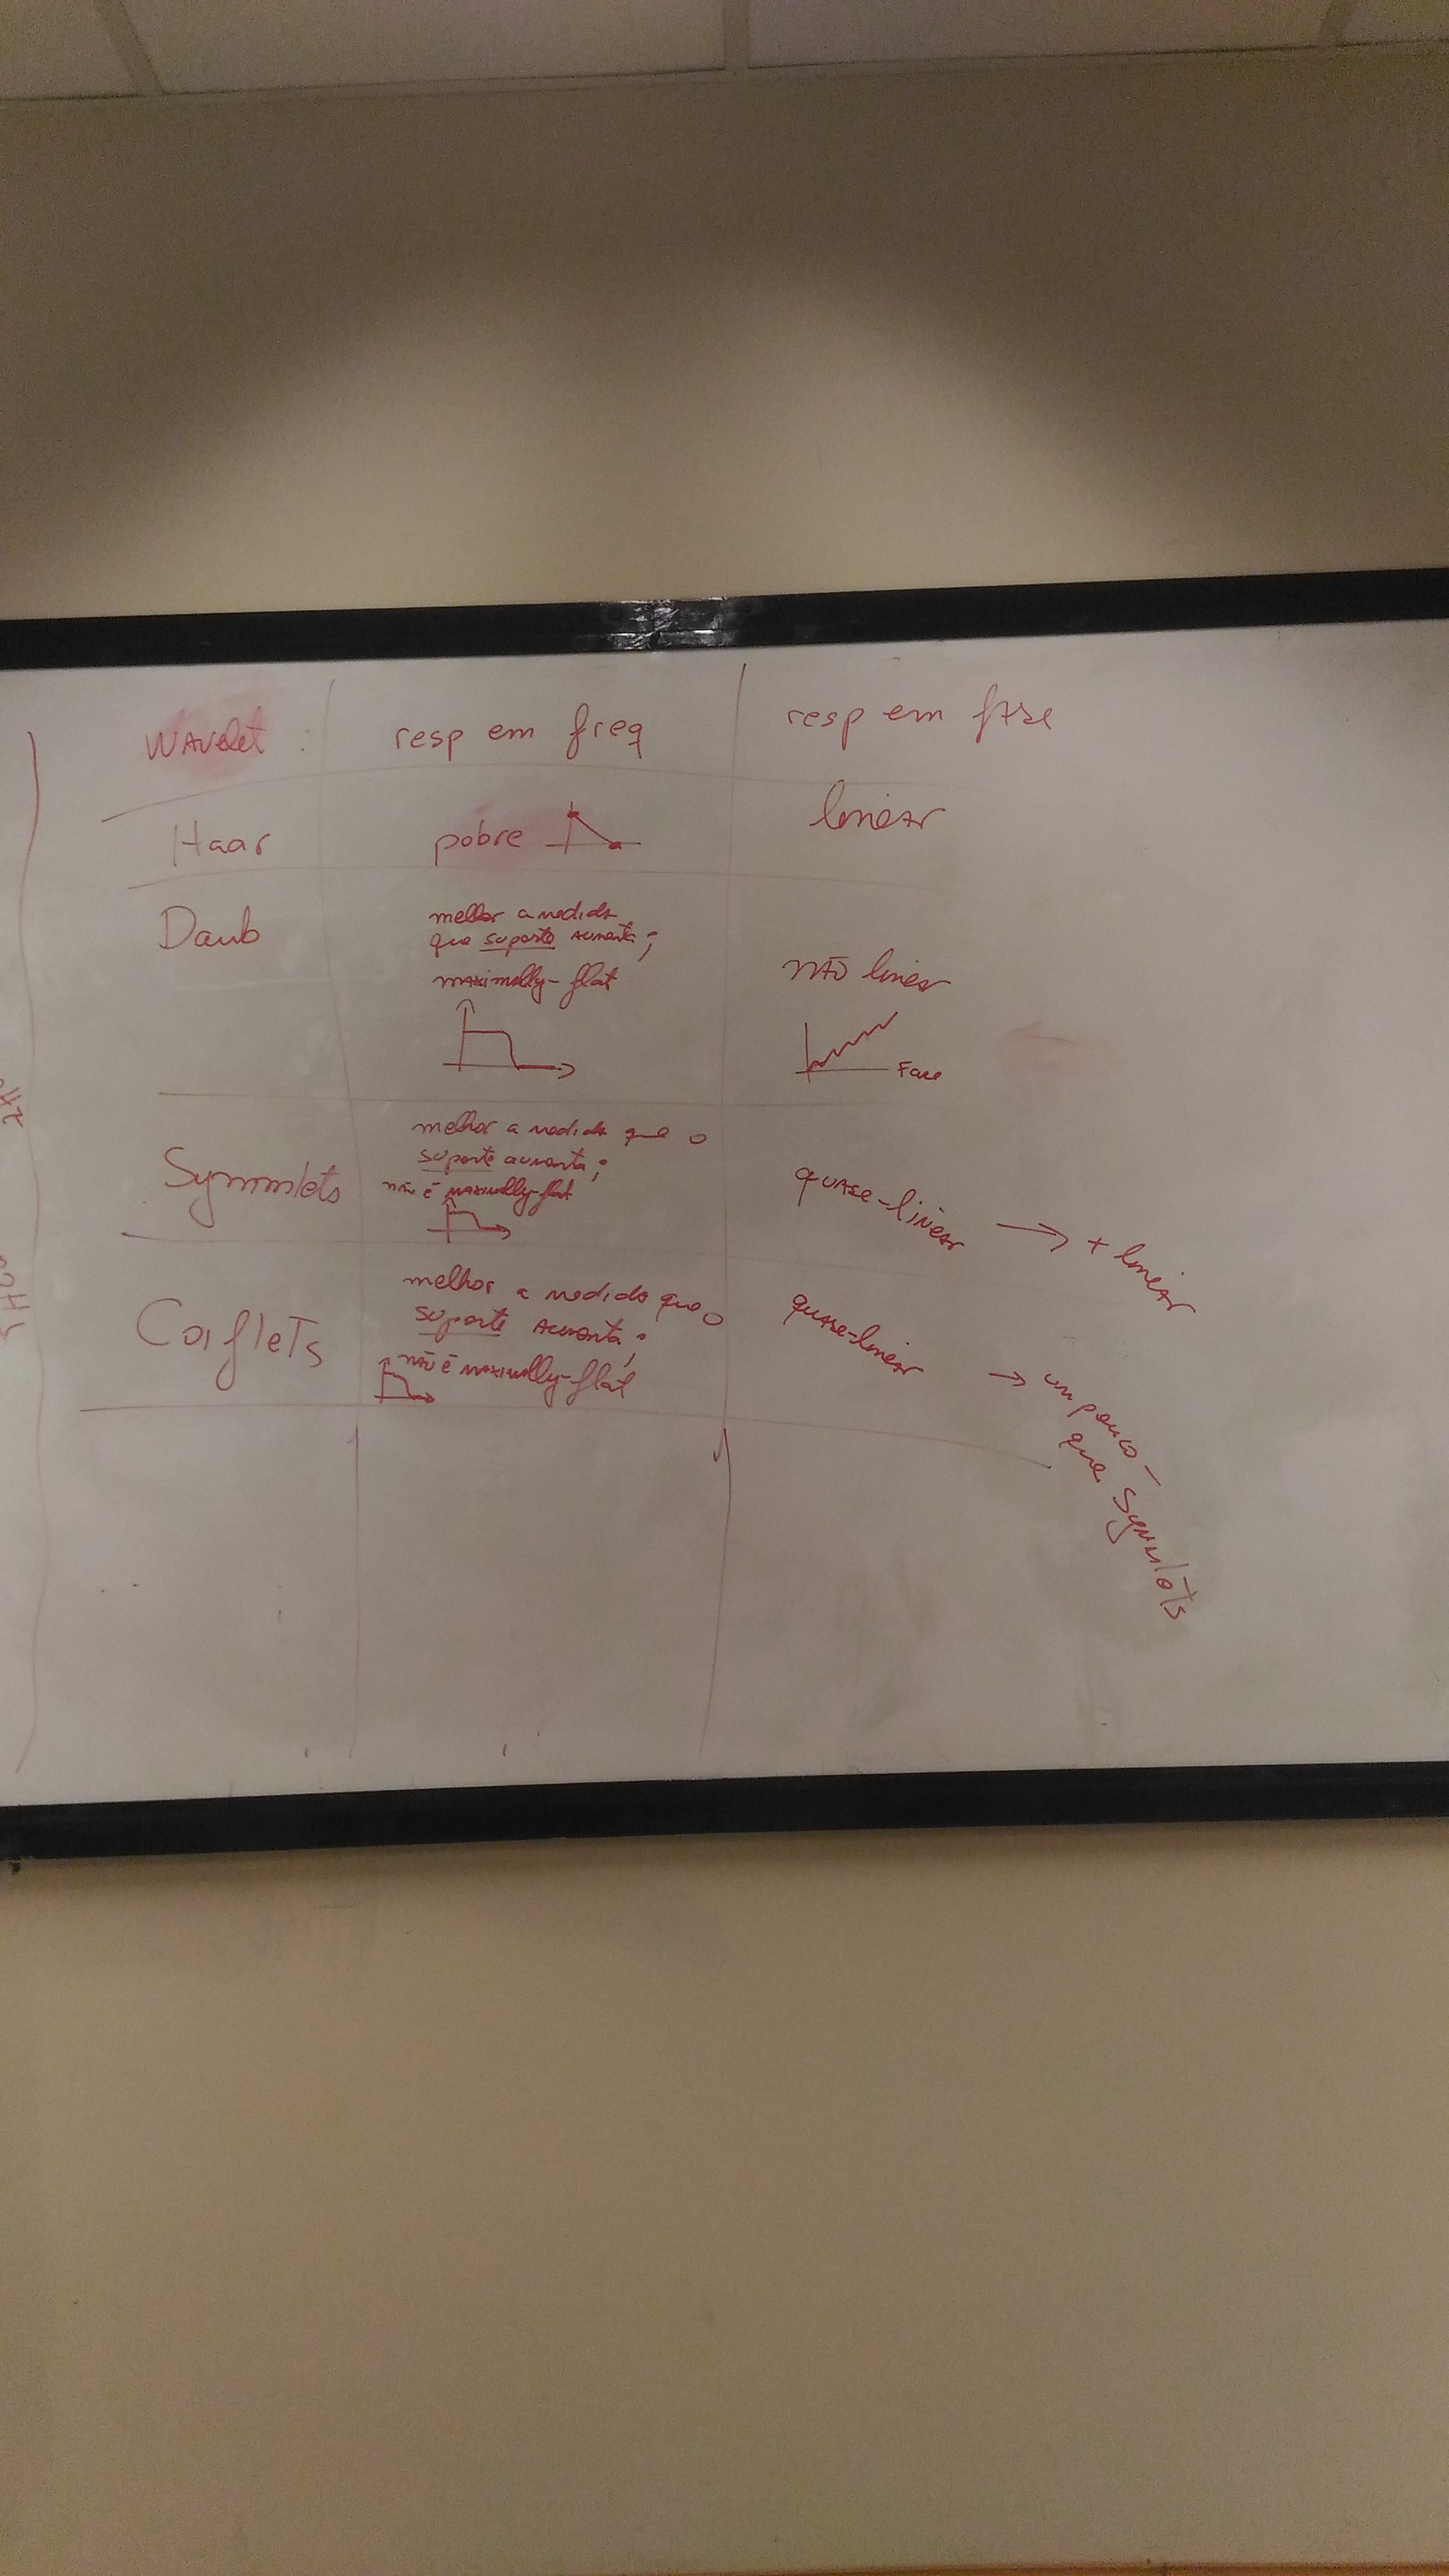 Wavelet : resp em freq resp em fase
Haar pobre linear
Daub melhor a medida
que suporte aumenta;
maximally-flat não linear
Fase
Symmlets melhor a medida que o
suporte aumenta;
não é maximally-flat
quase-linear → + linear
Coiflets melhor a medida que o
suporte aumenta;
não é maximally-flat
quase-linear → um pouco -
que Symmlets